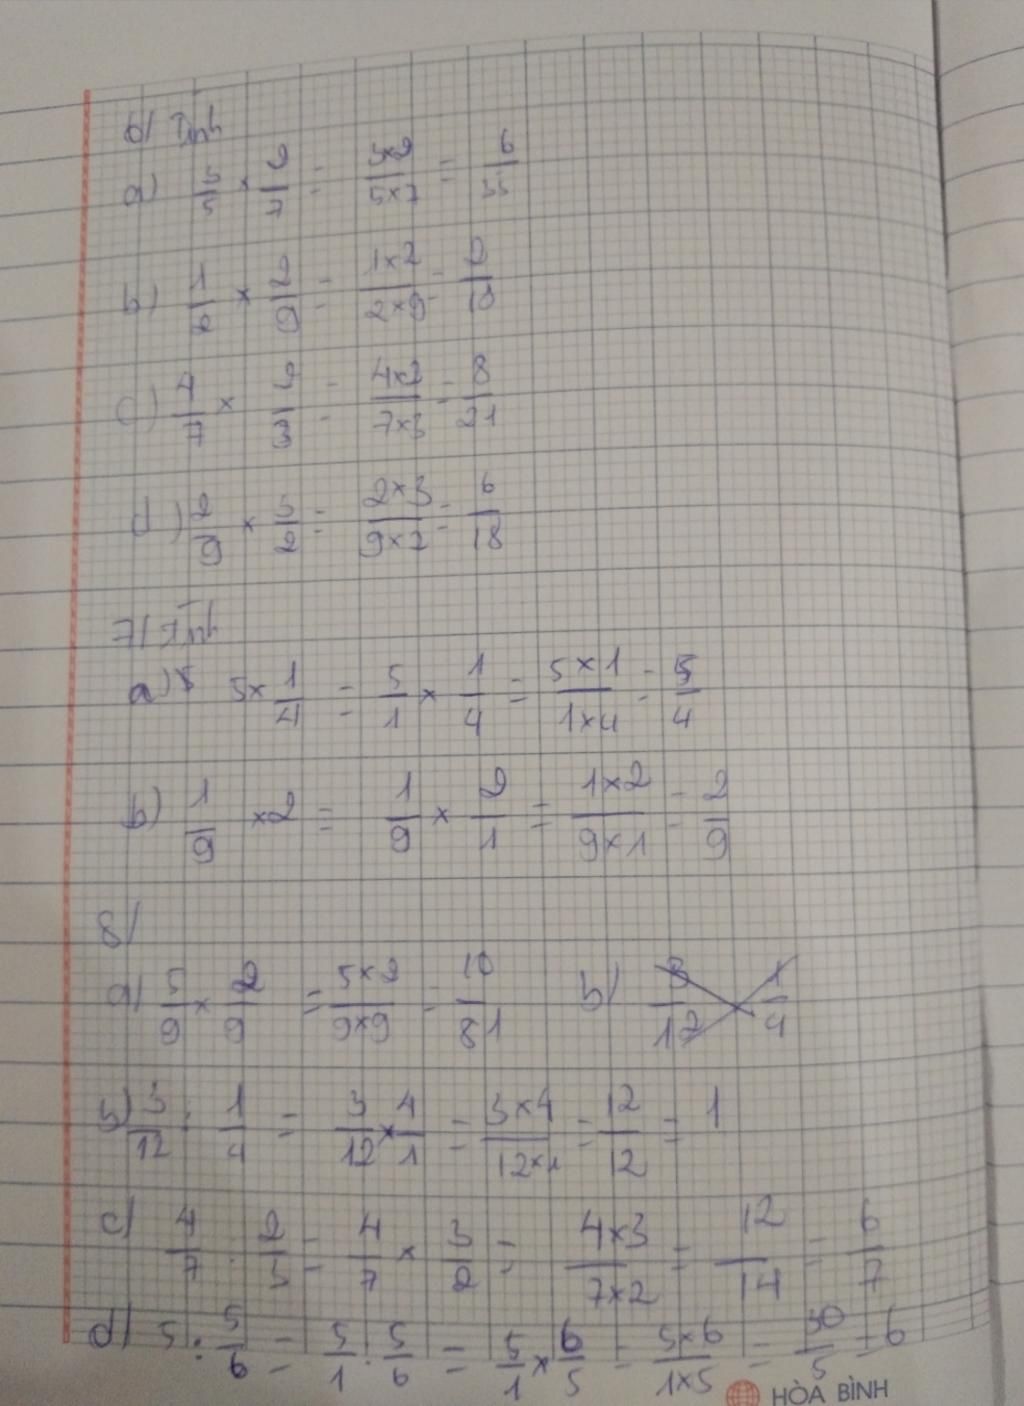 6/ Tính
a) 3/5 × 2/7 = 3×2/5×7 = 6/35
b) 1/2 × 2/9 = 1×2/2×9 = 2/18
c) 4/7 × 2/3 = 4×2/7×3 = 8/21
d) 2/9 × 3/2 = 2×3/9×2 = 6/18
7/ Tính
a) 5 × 1/4 = 5/1 × 1/4 = 5×1/1×4 = 5/4
b) 1/9 × 2 = 1/9 × 2/1 = 1×2/9×1 = 2/9
8/
a) 5/9 × 2/9 = 5×2/9×9 = 10/81 b)
b) 3/12 : 1/4 = 3/12 × 4/1 = 3×4/12×1 = 12/12 = 1
c) 4/7 : 2/3 = 4/7 × 3/2 = 4×3/7×2 = 12/14 = 6/7
d) 5 : 5/6 = 5/1 : 5/6 = 5/1 × 6/5 = 5×6/1×5 = 30/5 = 6
HÒA BÌNH